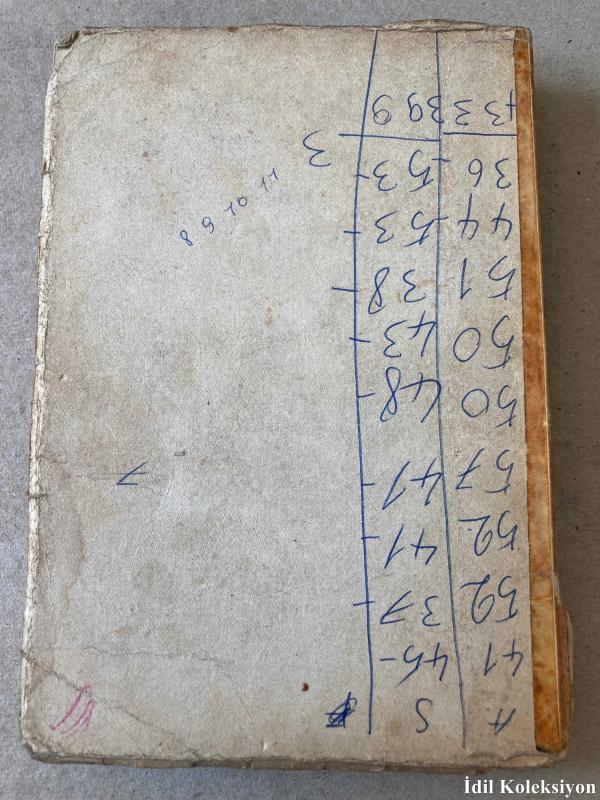 A S
41 45-
52 37-
52 41-
57 41-
50 48-
50 43-
51 38-
44 53-
36 53-
433 399
7
3
8 9 10 11
İdil Koleksiyon